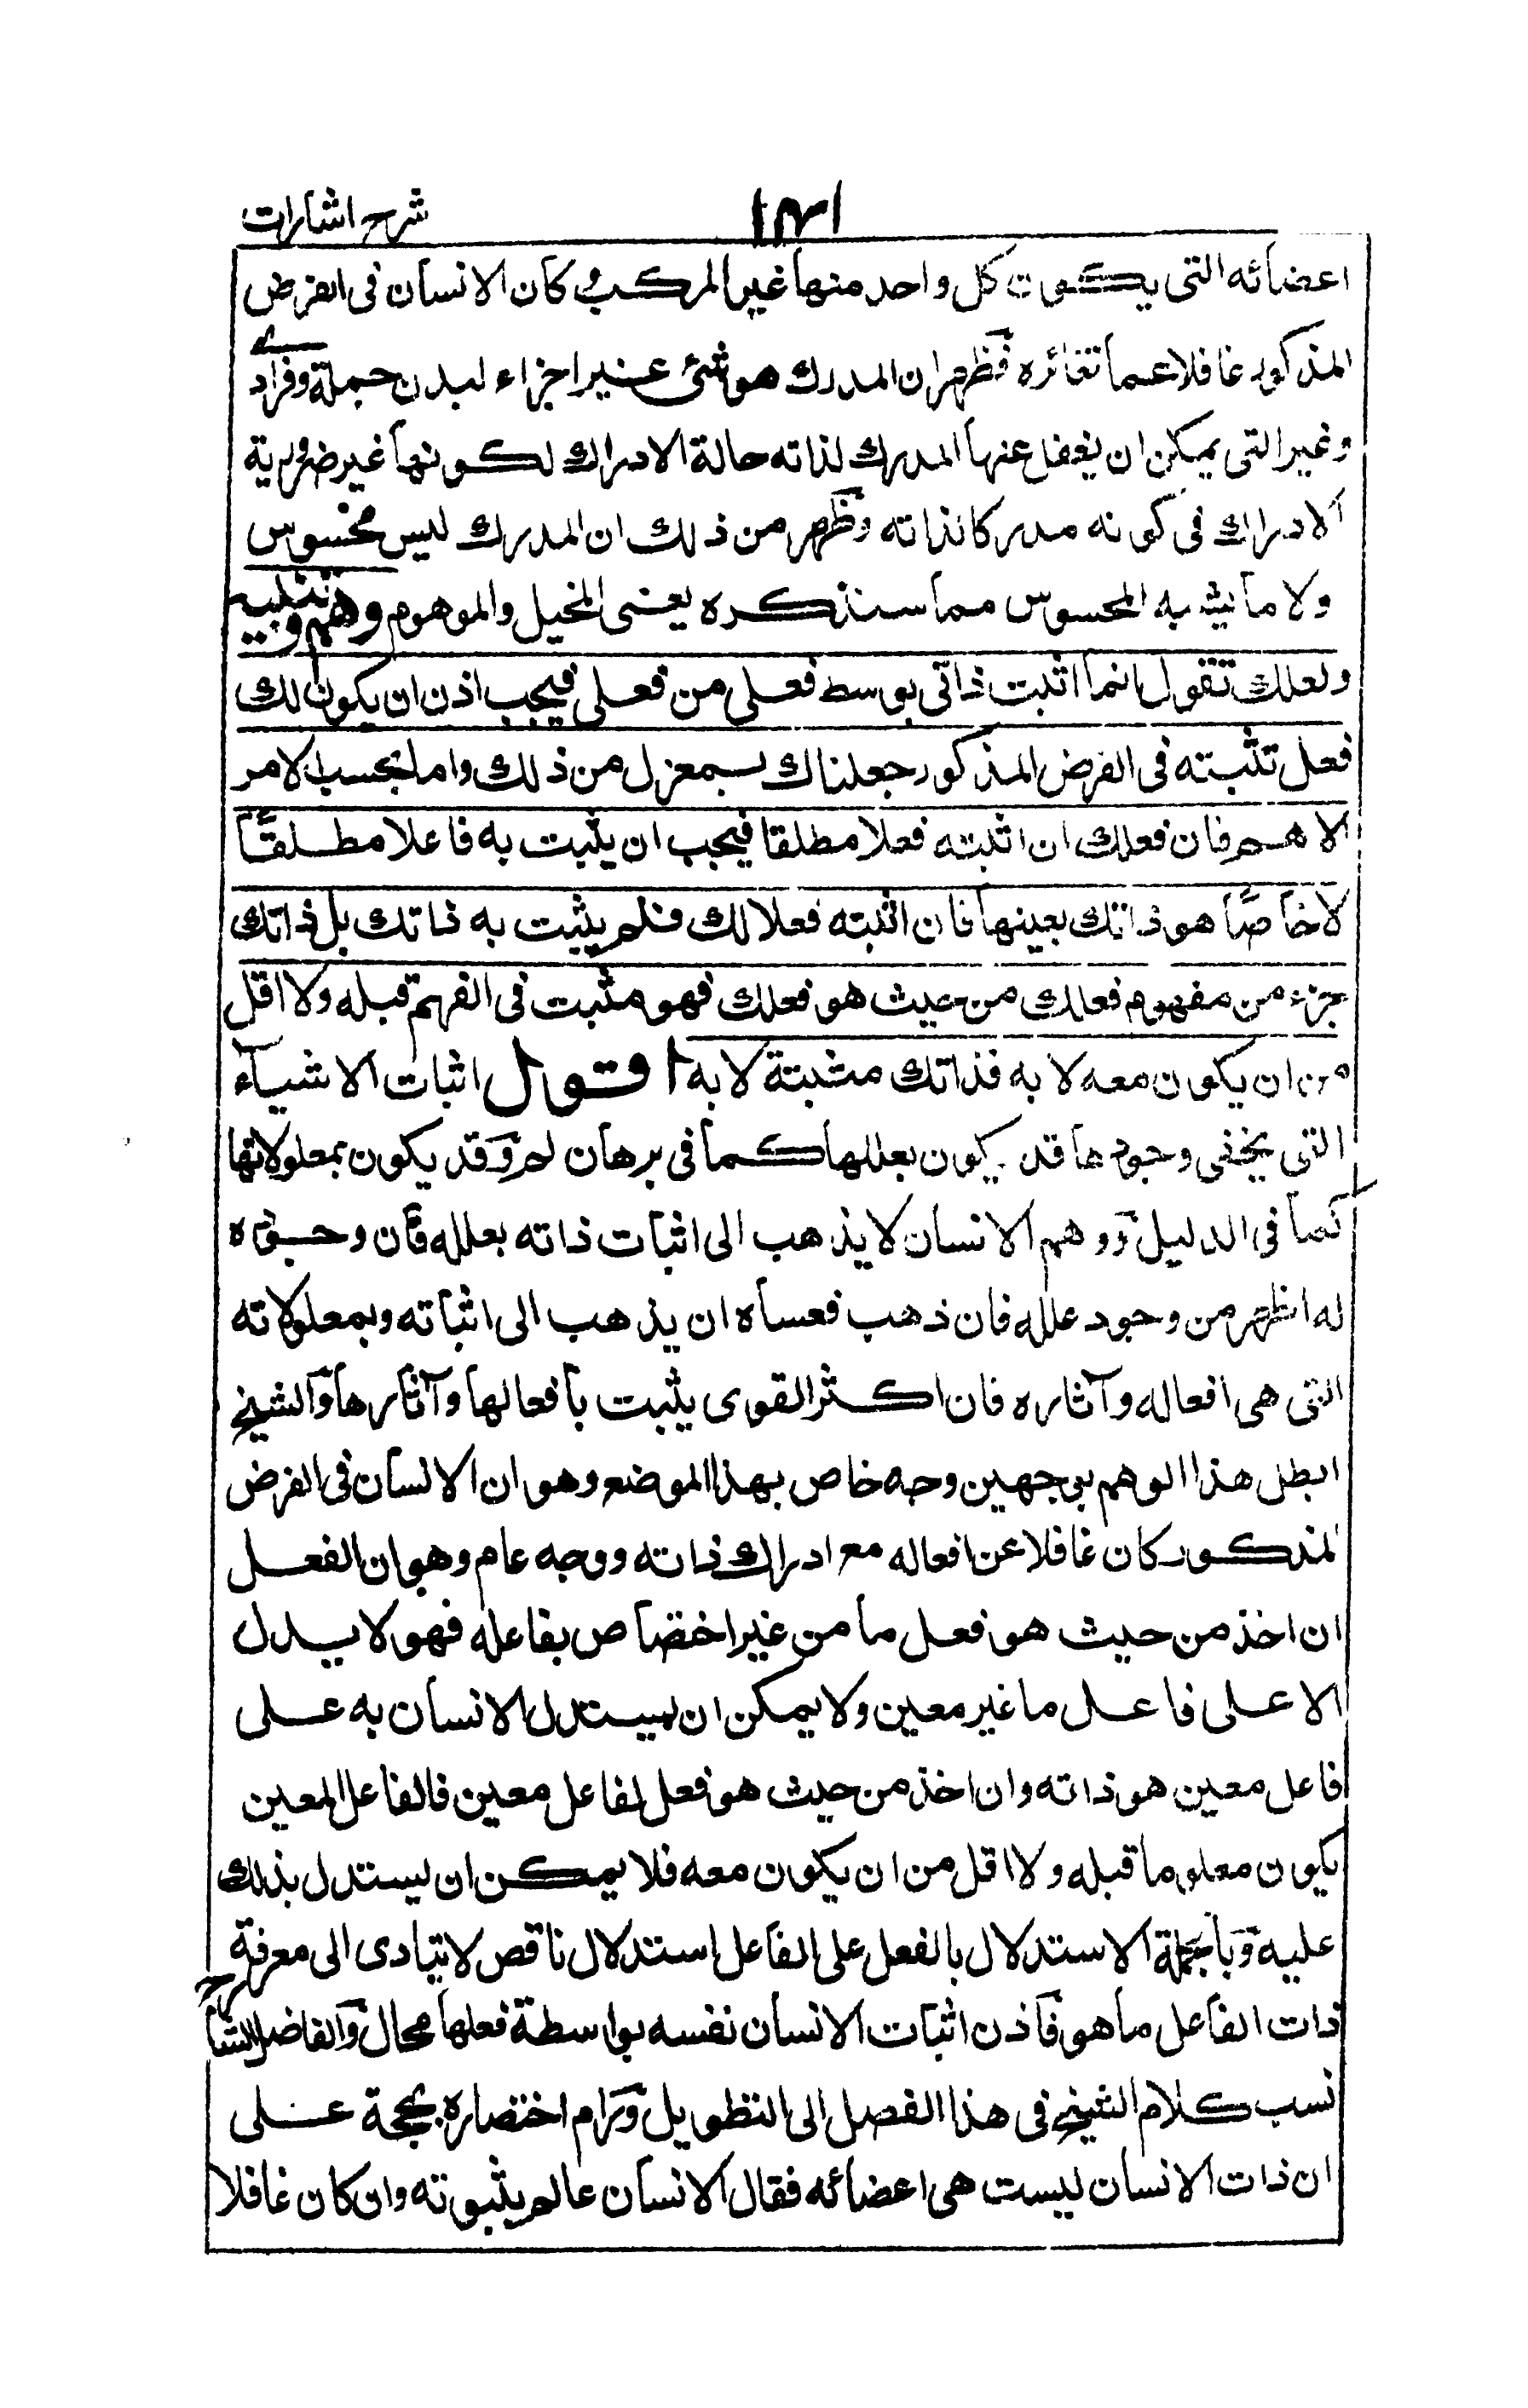 شرح اشارات
١٣١
اعضائه التى يكون كل واحد منها غير المركب و كان الانسان فى الفرض
المذكور غافلا عما تغائره فظهر ان المدرك هو شئ غير اجزاء البدن جملة وفرادى
وغير التى يمكن ان يغفل عنها المدرك لذاته حالة الادراك لكونها غير ضرورية
الادراك فى كونه مدركا لذاته وظهر من ذلك ان المدرك ليس محسوس
ولا ما يشبه المحسوس مما سنذكره يعنى المخيل والموهوم وهم وتنبيه
ولعلك تقول انما اثبت ذاتى بوسط فعلى من فعلى فيجب اذن ان يكون لك
فعل تثبته فى الفرض المذكور جعلناك بمعزل من ذلك واما بحسب الامر
الاهم فان فعلك ان اثبته فعلا مطلقا فيجب ان يثبت به فاعلا مطلقًا
لا خاصًا هو ذاتك بعينها فان اثبته فعلا لك فلم يثبت به ذاتك بل ذاتك
جزء من مفهوم فعلك من حيث هو فعلك فهو مثبت فى الفهم قبله ولا اقل
من ان يكون معه لا به فذاتك مثبتة لا به اقول اثبات الاشيآء
التى يخفى وجودها قد يكون بعللها كما فى برهان لم وقد يكون بمعلولاتها
كما فى الدليل ووهم الانسان لا يذهب الى اثبات ذاته بعلله فان وجوده
له اظهر من وجود علله فان ذهب فعساه ان يذهب الى اثباته وبمعلولاته
التى هى افعاله وآثاره فان اكثر القوى يثبت بافعالها وآثارها والشيخ
ابطل هذا الوهم بوجهين وجه خاص بهذا الموضع وهو ان الانسان فى الفرض
المذكور كان غافلا عن افعاله مع ادراك ذاته ووجه عام وهو ان الفعل
ان اخذ من حيث هو فعل ما من غير اختصاص بفاعله فهو لا يدل
الا على فاعل ما غير معين ولا يمكن ان يستدل الانسان به على
فاعل معين هو ذاته وان اخذ من حيث هو فعل لفاعل معين فالفاعل المعين
يكون معلوما قبله ولا اقل من ان يكون معه فلا يمكن ان يستدل بذلك
عليه وبالجملة الاستدلال بالفعل على الفاعل استدلال ناقص لا يتادى الى معرفة
ذات الفاعل ما هو فاذن اثبات الانسان نفسه بواسطة فعلها محال والفاضل الشارح
نسب كلام الشيخ فى هذا الفصل الى التطويل ورام اختصاره بحجة على
ان ذات الانسان ليست هى اعضائه فقال الانسان عالم بثبوته وان كان غافلا